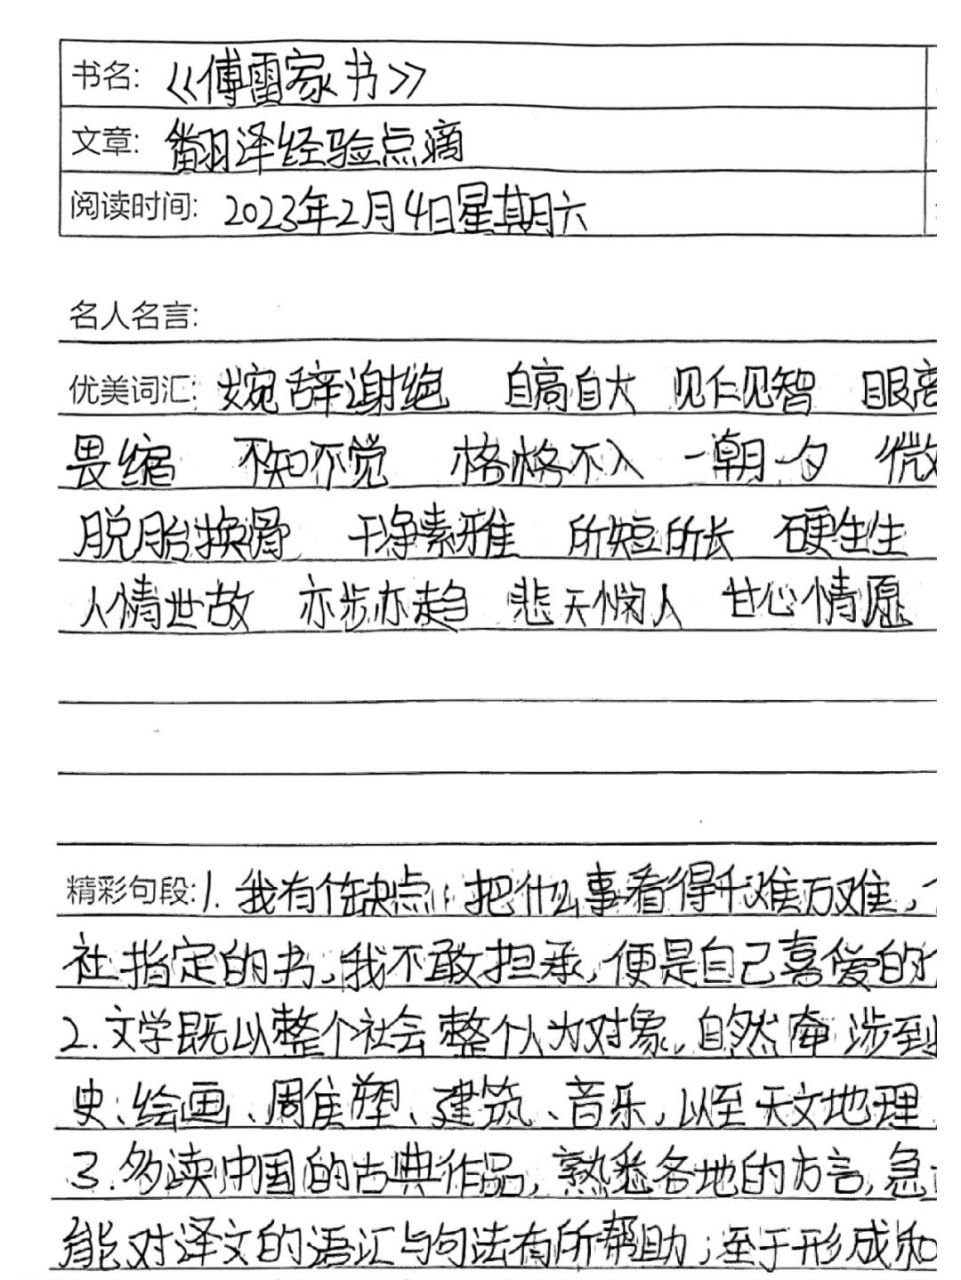 书名: 《傅雷家书》
文章: 翻译经验点滴
阅读时间: 2023年2月4日星期六
名人名言:
优美词汇: 婉辞谢绝 自高自大 见仁见智 眼高
畏缩 不知不觉 格格不入 一朝一夕 微
脱胎换骨 干净素雅 所短所长 硬生生
人情世故 亦步亦趋 悲天悯人 甘心情愿
精彩句段: 1. 我有个缺点：把什么事看得千难万难，
社指定的书，我不敢担承，便是自己喜爱的
2. 文学既以整个社会整个人为对象，自然牵涉到
史、绘画、雕塑、建筑、音乐，以至天文地理
3. 多读中国的古典作品，熟悉各地的方言，急
能对译文的语汇与句法有所帮助；至于形成和